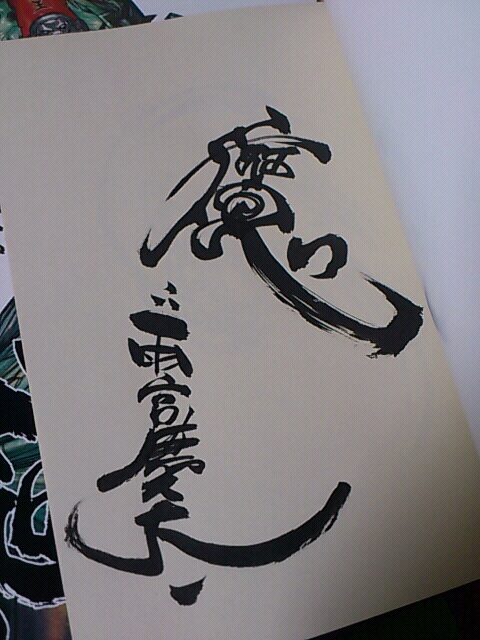 魔
雨宮慶太